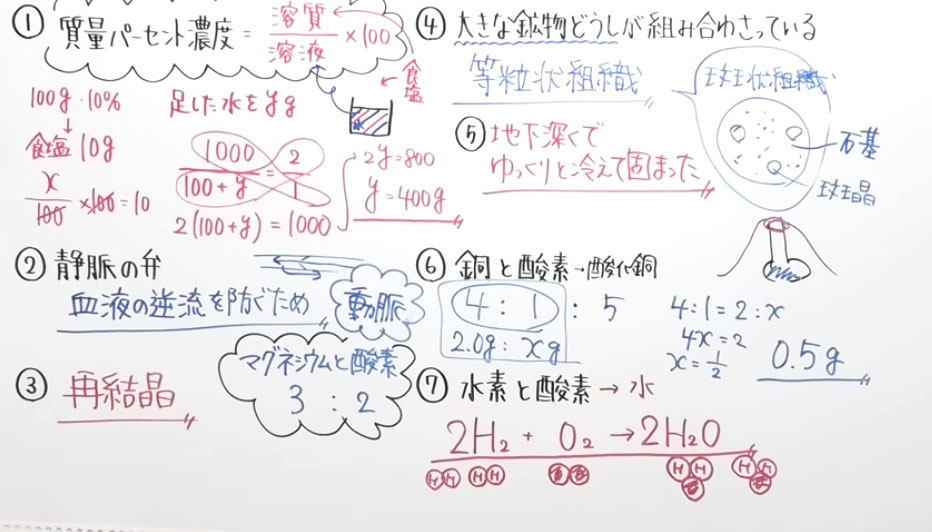 ① 質量パーセント濃度 = 溶質/溶液 ×100
食塩
100g 10%
↓
食塩 10g
x/100 ×100 = 10
足した水を yg
1000/100+y = 2/1
2(100+y) = 1000
2y=800
y=400g
② 静脈の弁
血液の逆流を防ぐため
動脈
③ 再結晶
マグネシウムと酸素
3 : 2
④ 大きな鉱物どうしが組み合わさっている
等粒状組織
斑状組織
石基
斑晶
⑤ 地下深くで
ゆっくりと冷えて固まった
⑥ 銅と酸素→酸化銅
4 : 1 : 5
2.0g : xg
4:1=2:x
4x=2
x=1/2
0.5g
⑦ 水素と酸素→水
2H₂ + O₂ → 2H₂O
HH HH OO HHO HHO